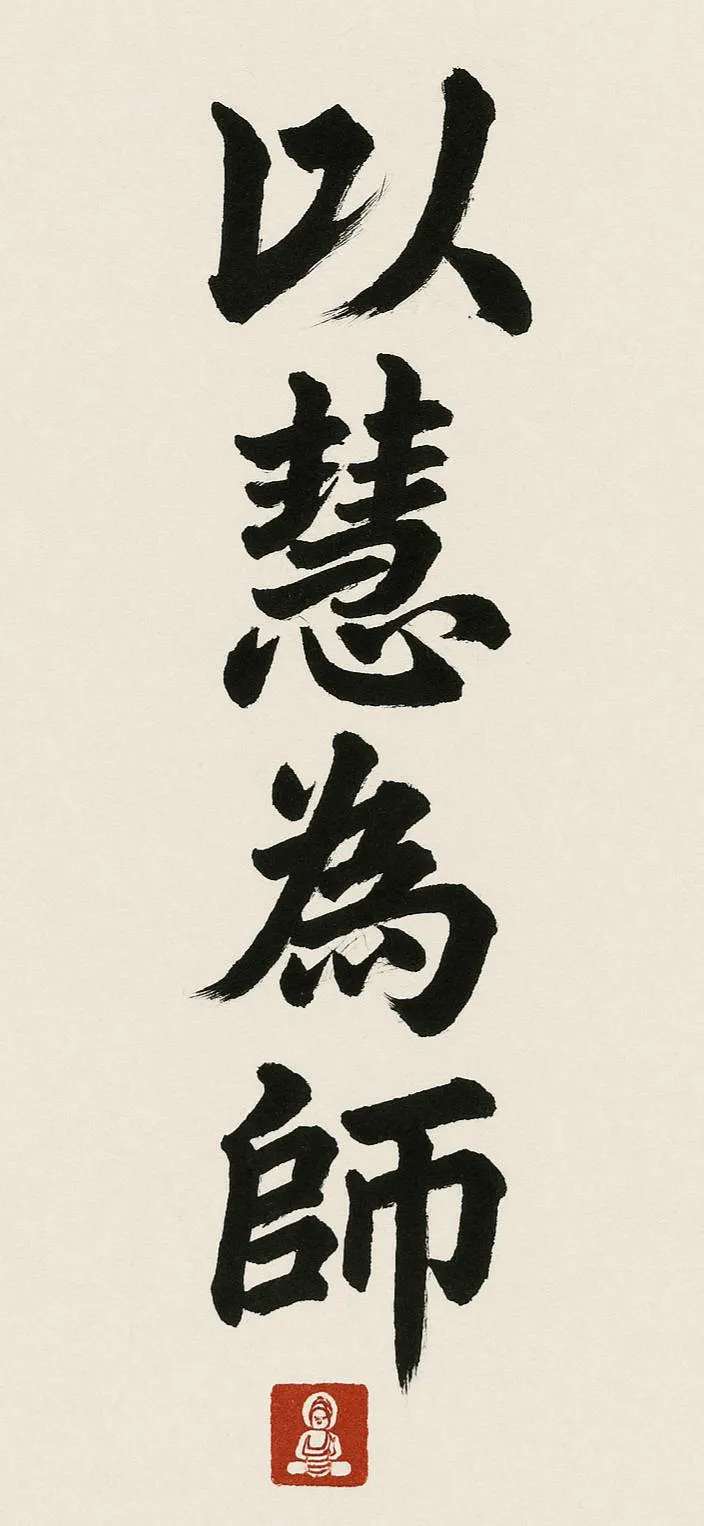 以慧為師